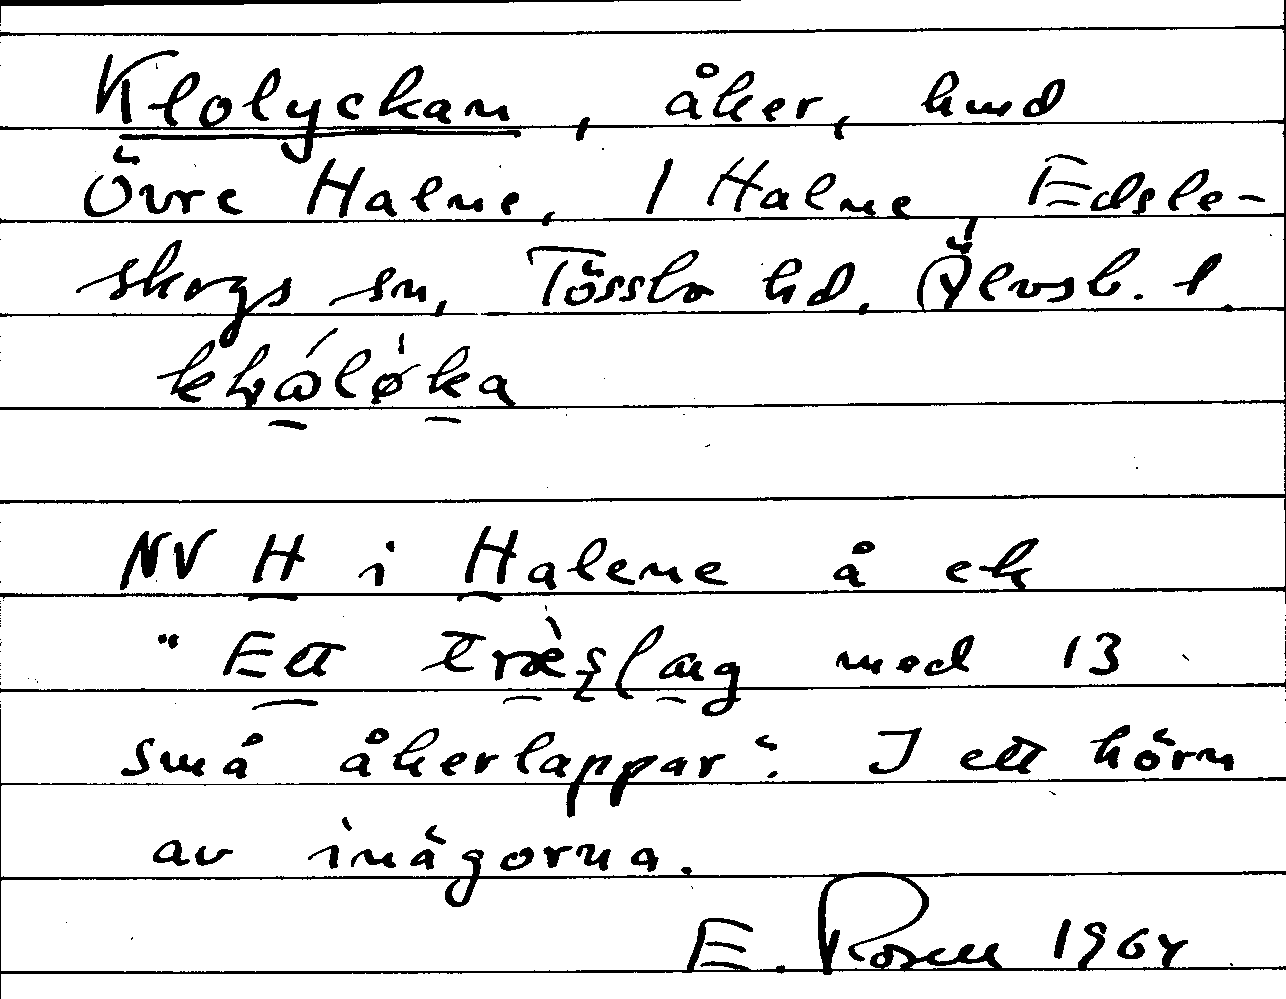 Klolyckan, åker, hmd
Övre Halne, 1 Halne, Edsle-
skogs sn, Tössbo hd. Älvsb. l.
NV H i Halene å ek
"Ett træslag med 13
små åkerlappar". I ett hörn
av inägorna.
E. Rosell 1964